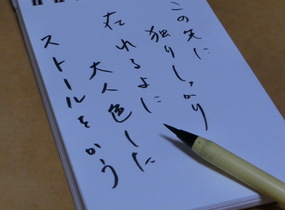 この先に
独りしっかり
在れるように
大人色した
ストールをかう